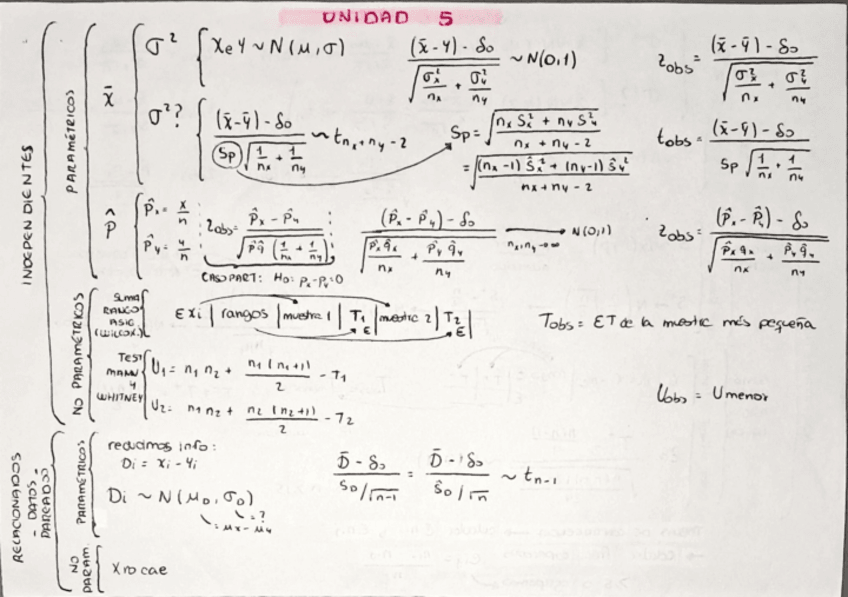 UNIDAD 5
INDEPENDIENTES
PARAMÉTRICOS
x̄
σ² { X e Y ~ N(μ,σ) (x̄-ȳ) - δ₀ / √(σx²/nx + σy²/ny) ~ N(0,1) zobs = (x̄-ȳ) - δ₀ / √(σx²/nx + σy²/ny)
σ²? { (x̄-ȳ) - δ₀ / Sp √(1/nx + 1/ny) ~ t nx+ny-2 Sp = √(nx Sx² + ny Sy² / nx + ny - 2) tobs = (x̄-ȳ) - δ₀ / Sp √(1/nx + 1/ny)
= √((nx-1) Ŝx² + (ny-1) Ŝy² / nx+ny-2)
p̂
p̂x = x/n zobs = p̂x - p̂y / √(p̂q̂ (1/nx + 1/ny)) (p̂x - p̂y) - δ₀ / √(p̂x q̂x/nx + p̂y q̂y/ny) → nx,ny→∞ N(0,1) zobs = (p̂x - p̂y) - δ₀ / √(p̂x q̂x/nx + p̂y q̂y/ny)
p̂y = y/n
CASO PART: H₀: px-py=0
NO PARAMÉTRICOS
SUMA
RANGO
ASIG
(WILCOX.)
E xi | rangos | muestra 1 | T₁ | muestra 2 | T₂ |
Σ Σ
Tobs = ET de la muestra más pequeña
TEST
MANN
Y
WHITNEY
U₁ = n₁ n₂ + n₁(n₁+1)/2 - T₁
U₂ = n₁ n₂ + n₂(n₂+1)/2 - T₂
Uobs = U menor
RELACIONADOS
- DATOS -
PAREADOS
PARAMÉTRICOS
reducimos info:
Di = xi - yi
D̄ - δ₀ / SD/√n-1 = D̄ - δ₀ / ŜD/√n ~ t n-1
Di ~ N(μD, σD)
= ?
= μx - μy
NO
PARAM.
X no cae